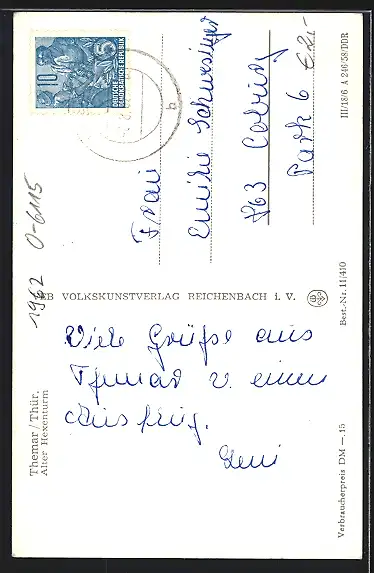 10
DEUTSCHE
DEMOKRATISCHE REPUBLIK
b
Frau
Emilie Schwesinger
863 Coburg
Park 6
€ 2,-
III/18/6 A 246/58/DDR
1962 O-6115
EB VOLKSKUNSTVERLAG REICHENBACH i. V.
Best.-Nr. 11/410
Viele Grüße aus
Themar v. einem
Ausflug.
Leni
Themar/Thür.
Alter Hexenturm
Verbraucherpreis DM —,15